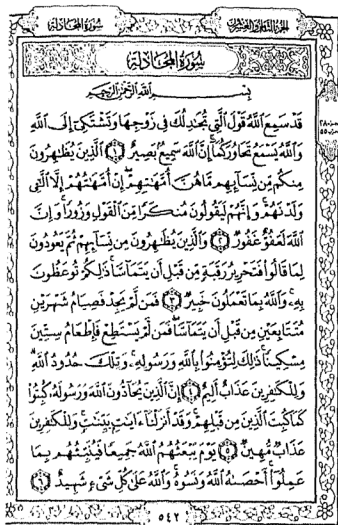 سُورَةُ المُجَادلة الجزء الثامن والعشرون سُورَةُ المُجَادلة
سُورَةُ المُجَادلة
بِسْمِ اللَّهِ الرَّحْمَٰنِ الرَّحِيمِ
قَدْ سَمِعَ اللَّهُ قَوْلَ الَّتِي تُجَٰدِلُكَ فِي زَوْجِهَا وَتَشْتَكِي إِلَى اللَّهِ
وَاللَّهُ يَسْمَعُ تَحَاوُرَكُمَا إِنَّ اللَّهَ سَمِيعٌ بَصِيرٌ ١ الَّذِينَ يُظَٰهِرُونَ
مِنكُم مِّن نِّسَآئِهِم مَّا هُنَّ أُمَّهَٰتِهِمْ إِنْ أُمَّهَٰتُهُمْ إِلَّا الَّٰٓـِٔي
وَلَدْنَهُمْ وَإِنَّهُمْ لَيَقُولُونَ مُنكَرًا مِّنَ الْقَوْلِ وَزُورًا وَإِنَّ
اللَّهَ لَعَفُوٌّ غَفُورٌ ٢ وَالَّذِينَ يُظَٰهِرُونَ مِن نِّسَآئِهِمْ ثُمَّ يَعُودُونَ
لِمَا قَالُوا فَتَحْرِيرُ رَقَبَةٍ مِّن قَبْلِ أَن يَتَمَآسَّا ذَٰلِكُمْ تُوعَظُونَ
بِهِ وَاللَّهُ بِمَا تَعْمَلُونَ خَبِيرٌ ٣ فَمَن لَّمْ يَجِدْ فَصِيَامُ شَهْرَيْنِ
مُتَتَابِعَيْنِ مِن قَبْلِ أَن يَتَمَآسَّا فَمَن لَّمْ يَسْتَطِعْ فَإِطْعَامُ سِتِّينَ
مِسْكِينًا ذَٰلِكَ لِتُؤْمِنُوا بِاللَّهِ وَرَسُولِهِ وَتِلْكَ حُدُودُ اللَّهِ
وَلِلْكَٰفِرِينَ عَذَابٌ أَلِيمٌ ٤ إِنَّ الَّذِينَ يُحَآدُّونَ اللَّهَ وَرَسُولَهُ كُبِتُوا
كَمَا كُبِتَ الَّذِينَ مِن قَبْلِهِمْ وَقَدْ أَنزَلْنَآ ءَايَٰتٍ بَيِّنَٰتٍ وَلِلْكَٰفِرِينَ
عَذَابٌ مُّهِينٌ ٥ يَوْمَ يَبْعَثُهُمُ اللَّهُ جَمِيعًا فَيُنَبِّئُهُم بِمَا
عَمِلُوا أَحْصَىٰهُ اللَّهُ وَنَسُوهُ وَاللَّهُ عَلَىٰ كُلِّ شَيْءٍ شَهِيدٌ ٦
٥٤٢